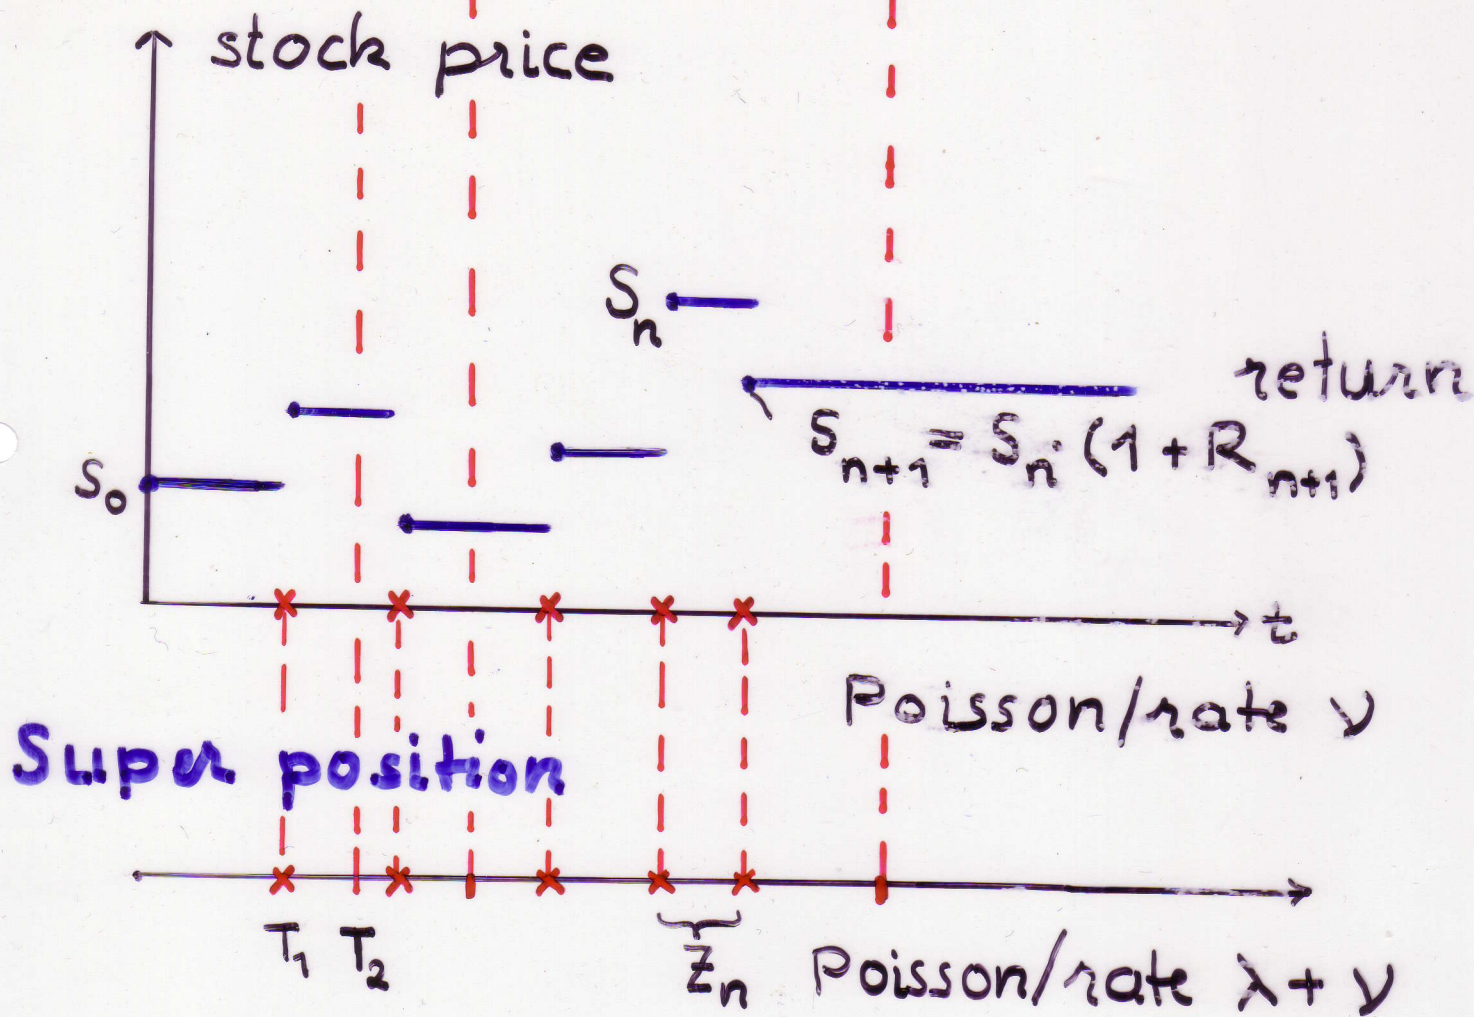 stock price
S_n
return
S_{n+1} = S_n · (1 + R_{n+1})
S_0
t
Poisson/rate ν
Super position
T_1 T_2 Z_n Poisson/rate λ + ν